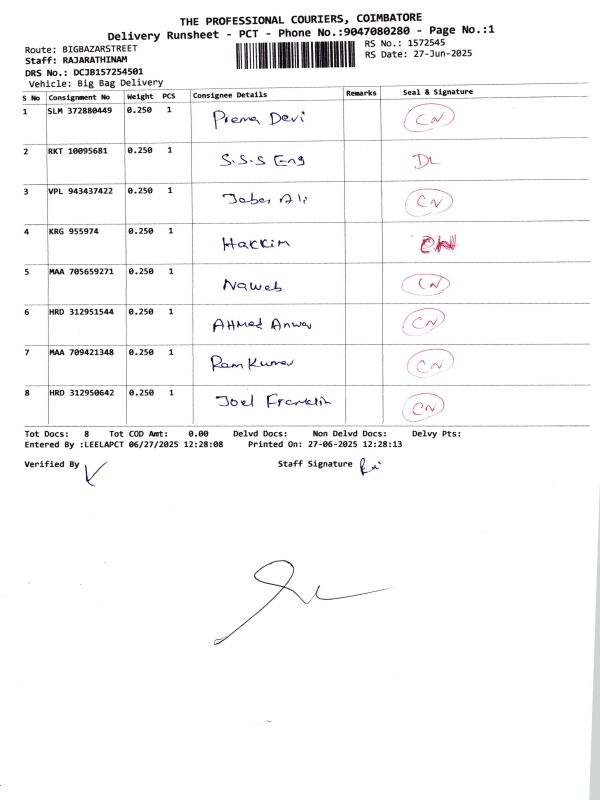 THE PROFESSIONAL COURIERS, COIMBATORE
Delivery Runsheet - PCT - Phone No.:9047080280 - Page No.:1
Route: BIGBAZARSTREET RS No.: 1572545
Staff: RAJARATHINAM RS Date: 27-Jun-2025
DRS No.: DCJB157254501
Vehicle: Big Bag Delivery
S No Consignment No Weight PCS Consignee Details Remarks Seal & Signature
1 SLM 372880449 0.250 1 Prema Devi CN
2 RKT 10095681 0.250 1 S.S.S Eng DL
3 VPL 943437422 0.250 1 Jaber Ali CN
4 KRG 955974 0.250 1 Hakkim CN
5 MAA 705659271 0.250 1 Naweb CN
6 HRD 312951544 0.250 1 AHMed Anwar CN
7 MAA 709421348 0.250 1 Ram Kumar CN
8 HRD 312950642 0.250 1 Joel Franklin CN
Tot Docs: 8 Tot COD Amt: 0.00 Delvd Docs: Non Delvd Docs: Delvy Pts:
Entered By :LEELAPCT 06/27/2025 12:28:08 Printed On: 27-06-2025 12:28:13
Verified By Staff Signature